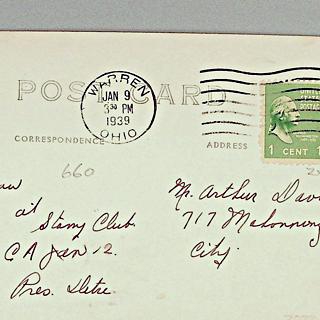 WARREN
JAN 9
3 30 PM
1939
OHIO
POST CARD
UNITED
STATES
POSTAGE
1 CENT 1
CORRESPONDENCE
ADDRESS
660
at
Stamp Club
Jan 12.
Pres. 
Mr. Arthur Davi
717 Mahoning
City.